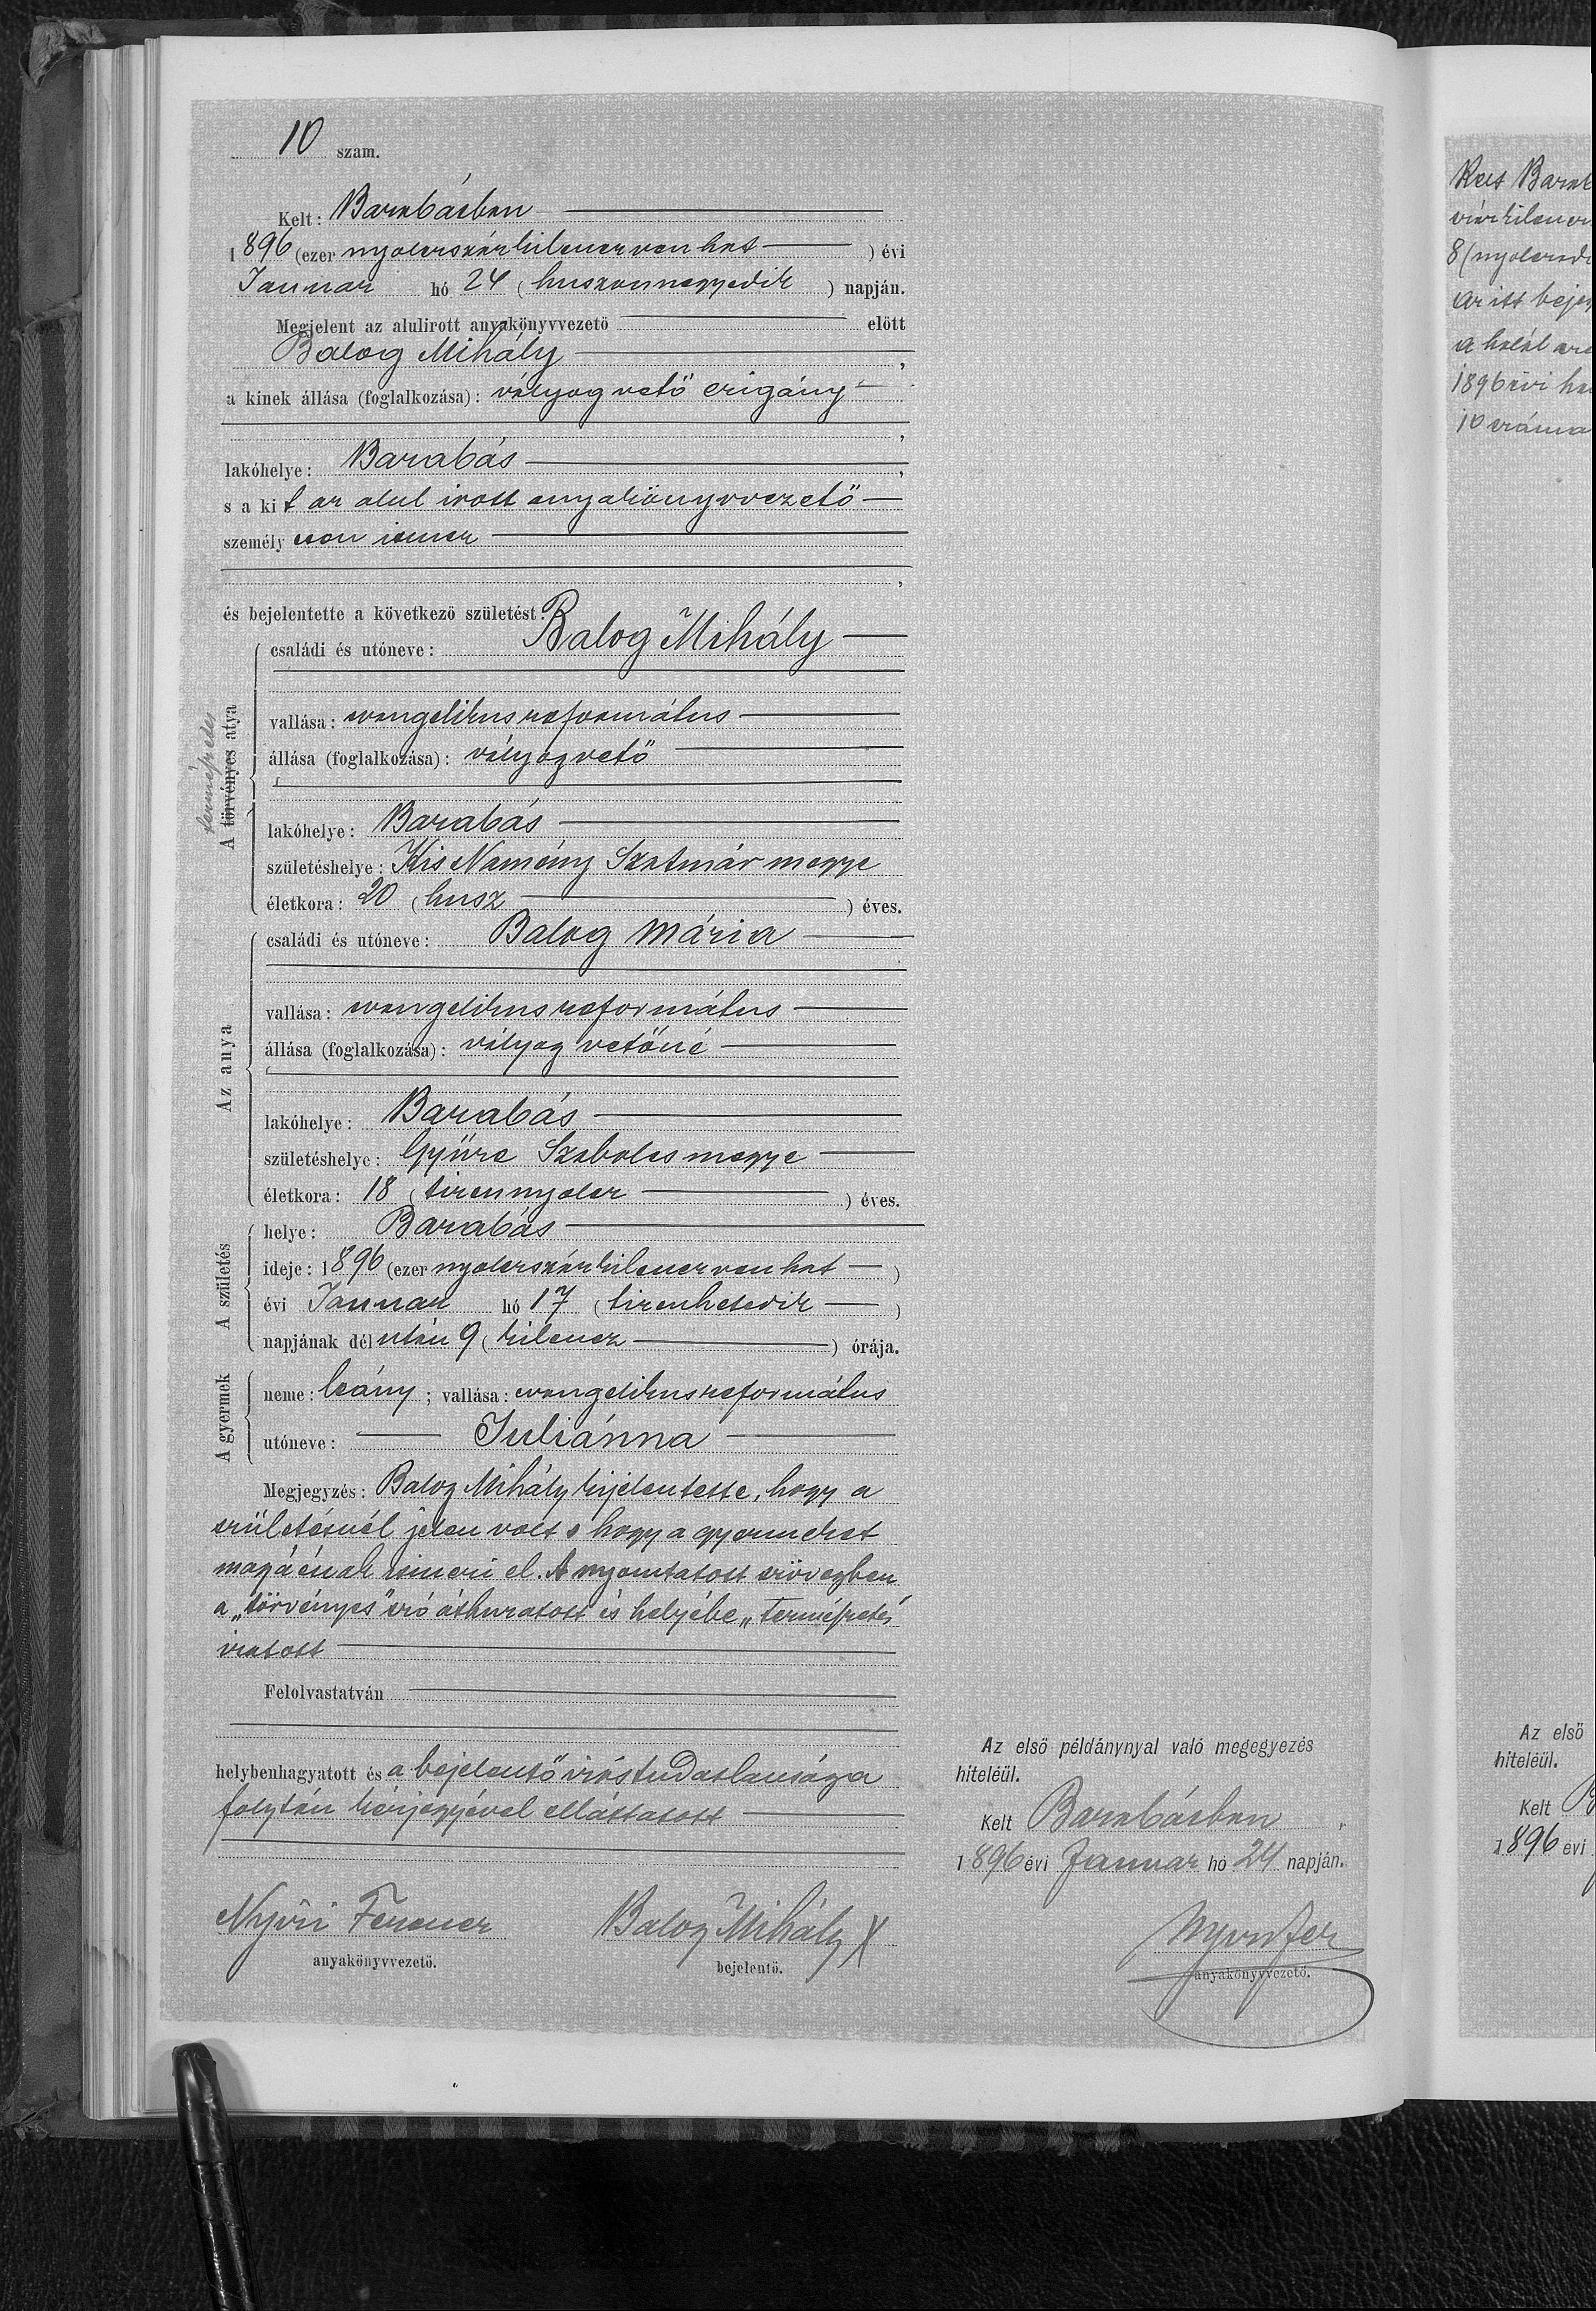 10 szám.
Kelt: Barabásban
1896 (ezer nyolczszázkilenczvenhat) évi
Januar hó 24 (huszonnegyedik) napján.
Megjelent az alulirott anyakönyvvezető előtt
Balog Mihály,
a kinek állása (foglalkozása): vályog vető czigány
,
lakóhelye: Barabás,
s a kit az alul irott anyakönyvvezető
személyesen ismer
,
és bejelentette a következő születést:
A törvényes atya
természetes
családi és utóneve: Balog Mihály
vallása: evangelikus református
állása (foglalkozása): vályogvető
lakóhelye: Barabás
születéshelye: Kis Namény Szatmár megye
életkora: 20 (husz) éves.
Az anya
családi és utóneve: Balog Mária
vallása: evangelikus református
állása (foglalkozása): vályog vetőné
lakóhelye: Barabás
születéshelye: Gyüre Szabolcs megye
életkora: 18 (tizennyolcz) éves.
A születés
helye: Barabás
ideje: 1896 (ezer nyolczszázkilenczvenhat)
évi Januar hó 17 (tizenhetedik)
napjának délután 9 (kilencz) órája.
A gyermek
neme: leány; vallása: evangelikus református
utóneve: Juliánna
Megjegyzés: Balog Mihály kijelentette, hogy a
születésnél jelen volt s hogy a gyermeket
magáénak ismeri el. A nyomtatott szövegben
a „törvényes" szó áthuzatott és helyébe „természetes"
iratott
Felolvastatván
helybenhagyatott és a bejelentő irástudatlansága
folytán kézjegyével elláttatott
Nyiri Ferencz
anyakönyvvezető.
Balog Mihály X
bejelentő.
Az első példánynyal való megegyezés
hiteléül.
Kelt Barabásban,
1896 évi Januar hó 24 napján.
anyakönyvvezető.
8 (nyolczadi
Az itt bejen
a halál
1896 évi
10 száma
Az első
hiteléül.
Kelt B
1896 évi